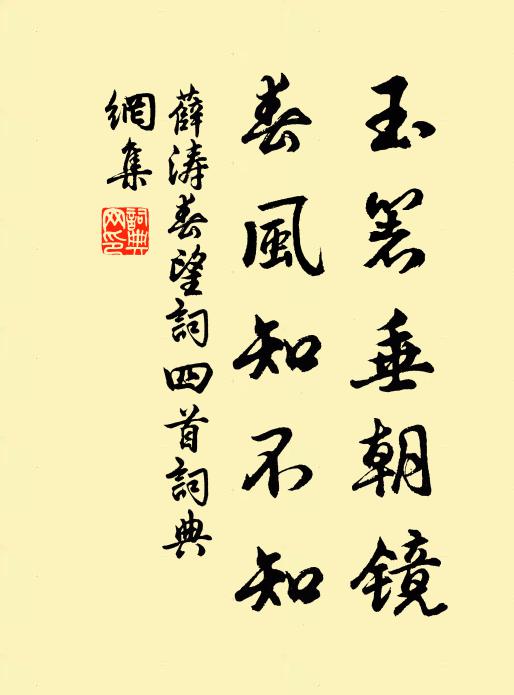 玉箸垂朝镜
春風知不知
薛涛春望詞四首詞典
網集
詞典網印